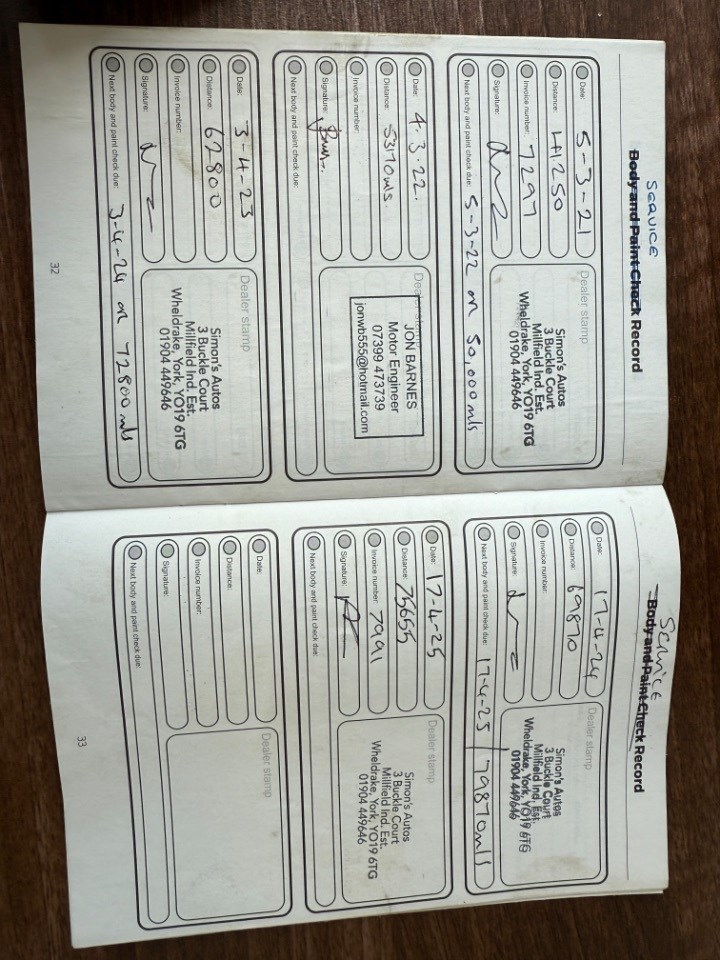 SERVICE
Body and Paint Check Record
Date: 5-3-21
Distance: 41,250
Invoice number: 7297
Signature:
Next body and paint check due: 5-3-22 or 50,000 mls
Dealer stamp
Simon's Autos
3 Buckle Court
Millfield Ind. Est.
Wheldrake, York, YO19 6TG
01904 449646
Date: 4.3.22.
Distance: 53170 mls
Invoice number:
Signature:
Next body and paint check due:
Dealer stamp
JON BARNES
Motor Engineer
07399 473739
jonwb555@hotmail.com
Date: 3-4-23
Distance: 62800
Invoice number:
Signature:
Next body and paint check due: 3-4-24 or 72800 mls
Dealer stamp
Simon's Autos
3 Buckle Court
Millfield Ind. Est.
Wheldrake, York, YO19 6TG
01904 449646
32
Service
Body and Paint Check Record
Date: 17-4-24
Distance: 69870
Invoice number:
Signature:
Next body and paint check due: 17-4-25 / 79870 mls
Dealer stamp
Simon's Autos
3 Buckle Court
Millfield Ind. Est.
Wheldrake, York, YO19 6TG
01904 449646
Date: 17-4-25
Distance: 75655
Invoice number: 7991
Signature:
Next body and paint check due:
Dealer stamp
Simon's Autos
3 Buckle Court
Millfield Ind. Est.
Wheldrake, York, YO19 6TG
01904 449646
Date:
Distance:
Invoice number:
Signature:
Next body and paint check due:
Dealer stamp
33